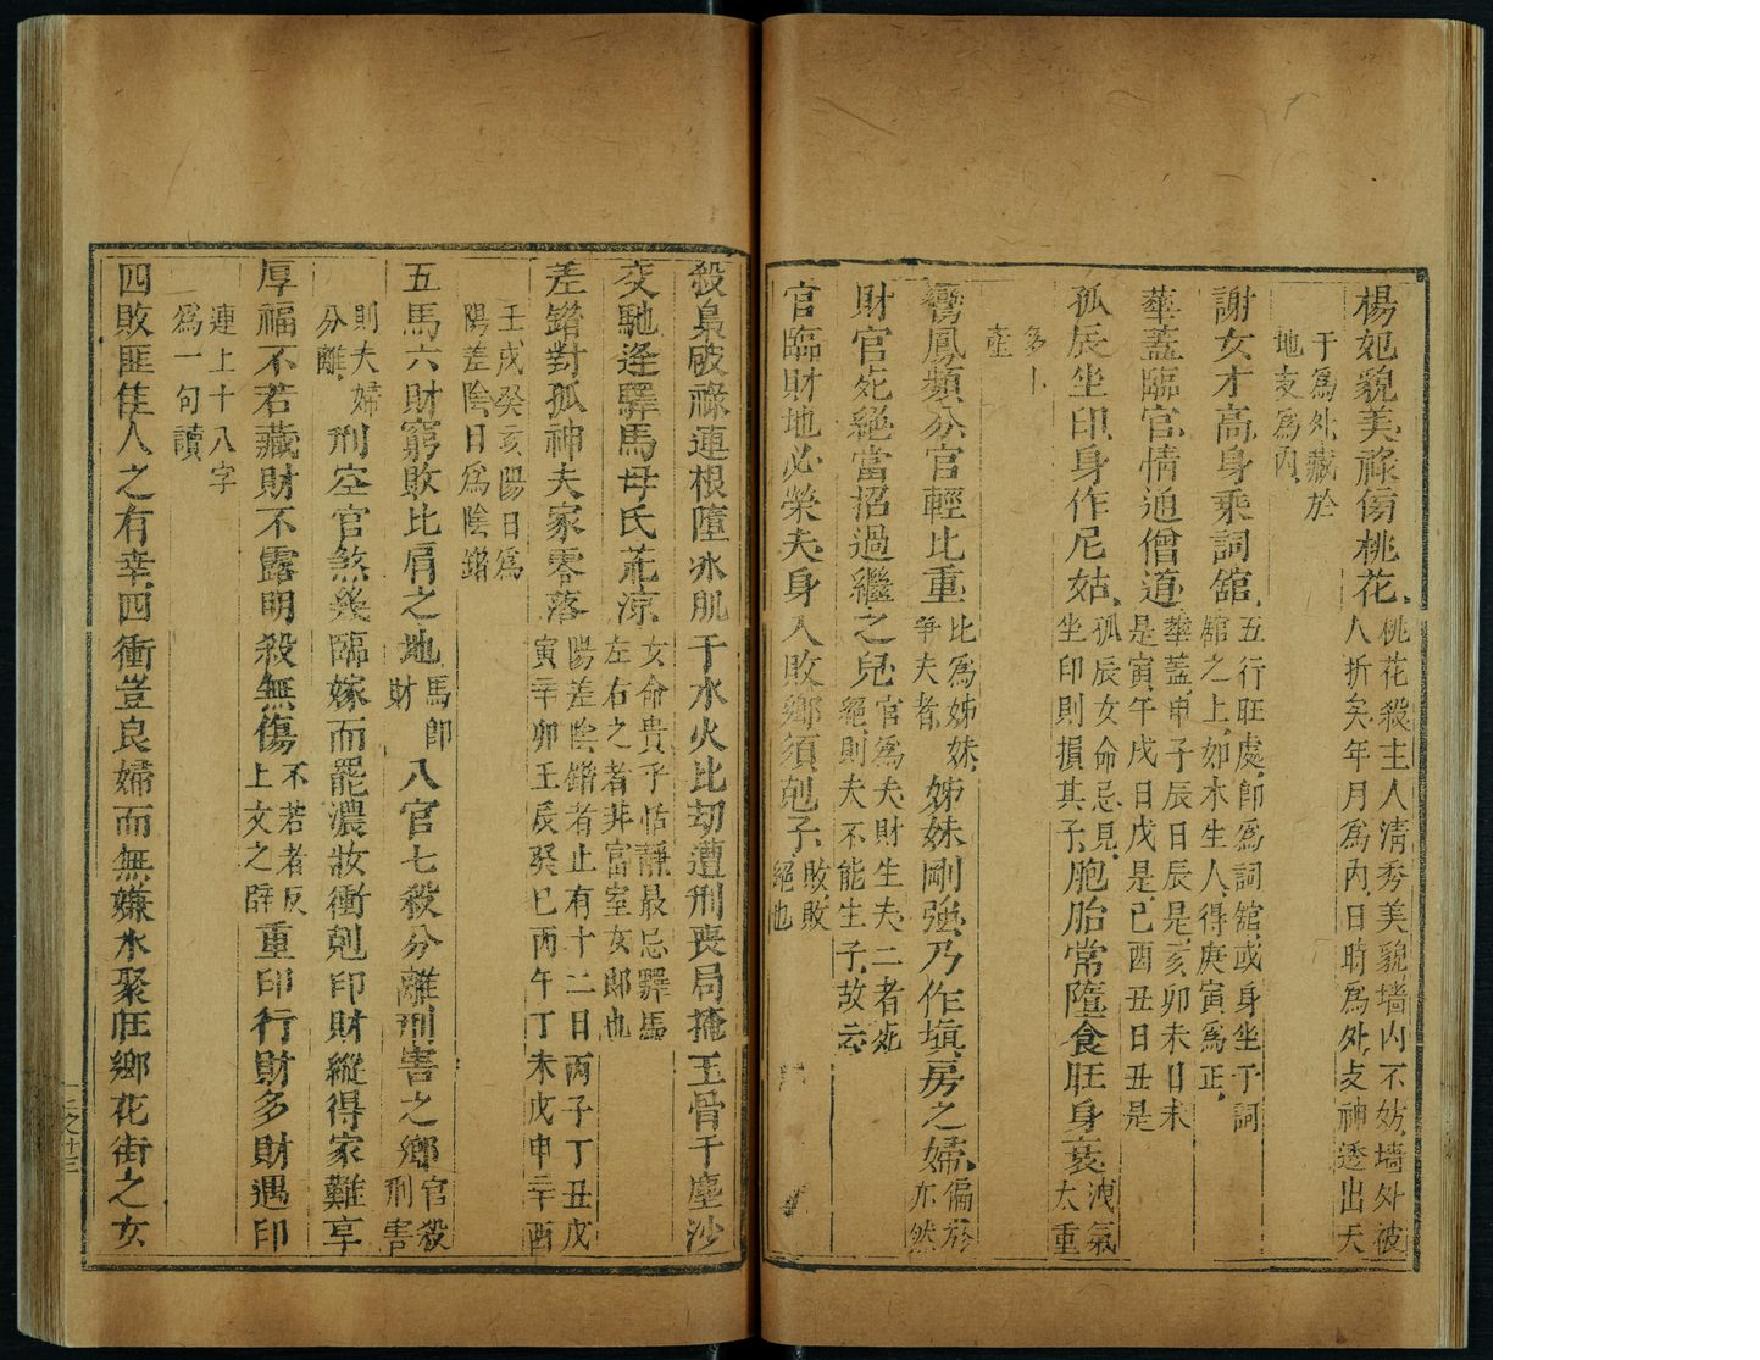 楊妃貌美祿傷桃花、桃花殺主人清秀美貌、墻內不妨、墻外被
人折矣、年月爲內、日時爲外、支神透出天
干爲外、藏於
地支爲內、
謝女才高、身乘詞舘、五行旺處、卽爲詞舘、或身坐于詞
舘之上、如水生人、得庚寅爲正、
華蓋臨官、情通僧道、華蓋、申子辰日辰是、亥卯未日未
是、寅午戌日戌是、巳酉丑日丑是
孤辰坐印、身作尼姑、孤辰女命忌見、
坐印則損其子、胞胎常墮、食旺身衰、洩氣
太重
多小
產
鸞鳳頻分、官輕比重、比爲姊妹、
爭夫者、姊妹剛強、乃作塡房之婦、偏房
亦然
財官死絕、當招過繼之兒、官爲夫、財生夫、二者死
絕、則夫不能生子、故云、
官臨財地必榮夫、身入敗鄉須剋子、敗敗
絕也
殺梟破祿連根、墮氷肌于水火、比刼遭刑喪局、掩玉骨于塵沙
交馳逢驛馬、母氏荒涼、女命貴乎恬靜、最忌驛馬
左右之者、非富室女郎也
差錯對孤神、夫家零落、陽差陰錯者、止有十二日、丙子丁丑戊
寅辛卯壬辰癸巳丙午丁未戊申辛酉
壬戌癸亥、陽日爲
陽差、陰日爲陰錯
五馬六財、窮敗比肩之地、馬卽
財八官七殺、分離刑害之鄉、官殺
刑害
則夫婦
分離、刑空官煞、幾臨嫁而罷濃妝、衝剋印財、縱得家難享
厚福、不若藏財不露、明殺無傷、不若者反
上文之辭重印行財、多財遇印
連上十八字
爲一句讀
四敗匪佳人之有幸、四衝豈良婦而無嫌、水聚旺鄉、花街之女